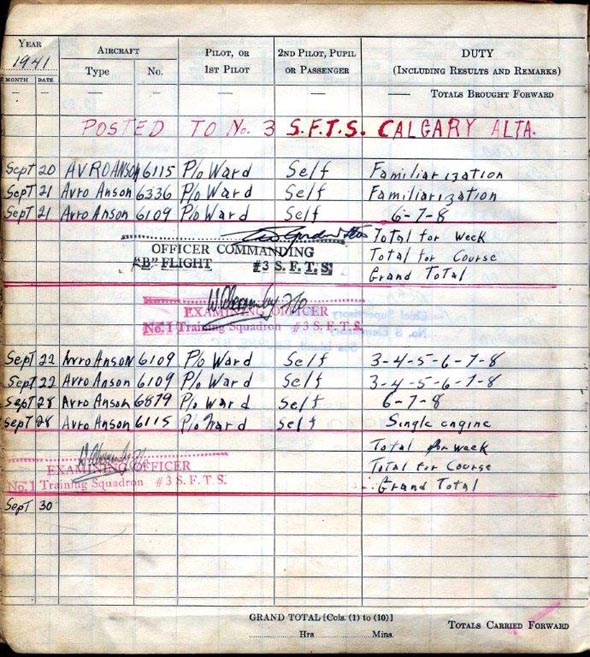 YEAR AIRCRAFT PILOT, OR 2ND PILOT, PUPIL DUTY
1941 Type No. 1ST PILOT OR PASSENGER (INCLUDING RESULTS AND REMARKS)
MONTH DATE
— — — — — — — TOTALS BROUGHT FORWARD
POSTED TO No. 3 S.F.T.S. CALGARY ALTA.
Sept 20 AVRO ANSON 6115 P/o Ward Self Familiarization
Sept 21 Avro Anson 6336 P/o Ward Self Familiarization
Sept 21 Avro Anson 6109 P/o Ward Self 6-7-8
Total for Week
OFFICER COMMANDING Total for Course
"B" FLIGHT #3 S.F.T.S. Grand Total
EXAMINING OFFICER
No. 1 Training Squadron #3 S.F.T.S.
Sept 22 Avro Anson 6109 P/o Ward Self 3-4-5-6-7-8
Sept 22 Avro Anson 6109 P/o Ward Self 3-4-5-6-7-8
Sept 28 Avro Anson 6879 P/o Ward Self 6-7-8
Sept 28 Avro Anson 6115 P/o Ward Self Single engine
Total for week
EXAMINING OFFICER Total for Course
No. 1 Training Squadron #3 S.F.T.S. Grand Total
Sept 30
GRAND TOTAL [Cols. (1) to (10)]
Hrs Mins. TOTALS CARRIED FORWARD